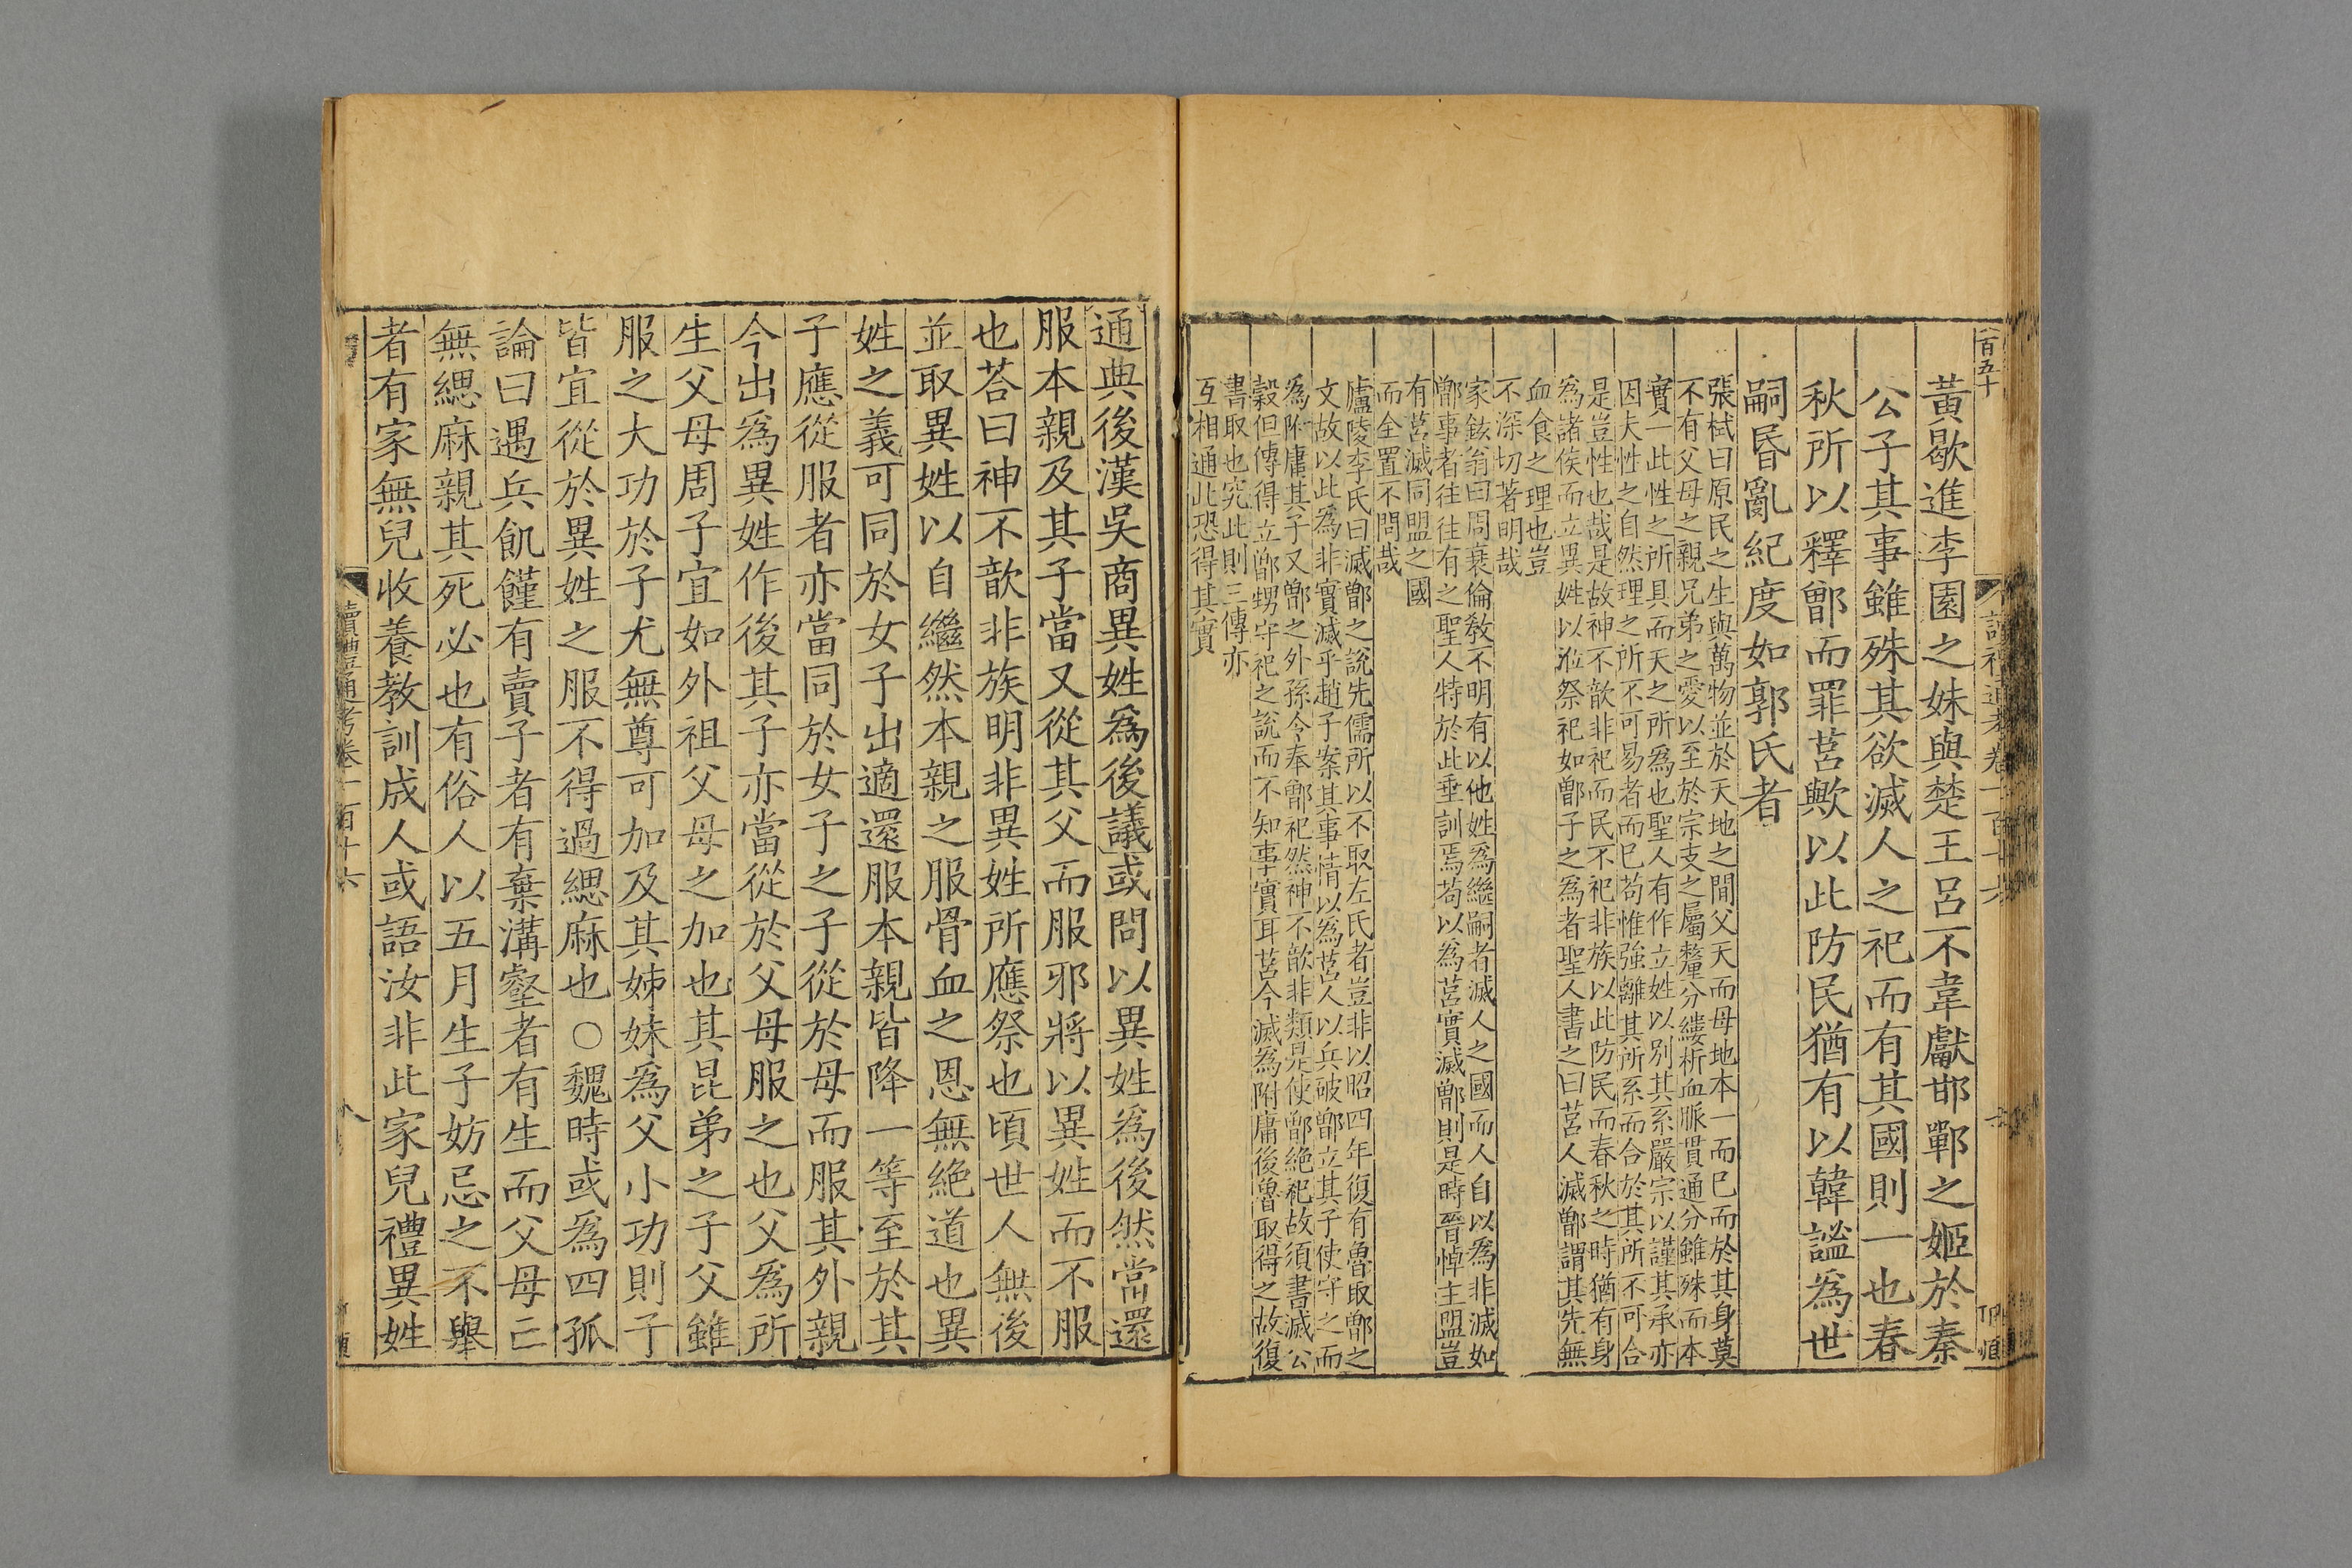 八百五十
讀禮通考卷一百十六
黃歇進李園之妹與楚王呂不韋獻邯鄲之姬於秦
公子其事雖殊其欲滅人之祀而有其國則一也春
秋所以釋鄫而罪莒歟以此防民猶有以韓謐為世
嗣昏亂紀度如郭氏者
張栻曰原民之生與萬物並於天地之間父天而母地本一而已而於其身莫
不有父母之親兄弟之愛以至於宗支之屬釐分縷析血脈貫通分雖殊而本
實一此性之所具而天之所為也聖人有作立姓以別其系嚴宗以謹其承亦
因夫性之自然理之所不可易者而已苟惟強離其所系而合於其所不可合
是豈性也哉是故神不歆非祀而民不祀非族以此防民而春秋之時猶有身
為諸侯而立異姓以涖祭祀如鄫子之為者聖人書之曰莒人滅鄫謂其先無
血食之理也豈
不深切著明哉
家鉉翁曰周衰倫敎不明有以他姓為繼嗣者滅人之國而人自以為非滅如
鄫事者往往有之聖人特於此垂訓焉苟以為莒實滅鄫則是時晉悼主盟豈
有莒滅同盟之國
而全置不問哉
廬陵李氏曰滅鄫之說先儒所以不取左氏者豈非以昭四年復有魯取鄫之
文故以此為非實滅乎趙子案其事情以為莒人以兵破鄫立其子使守之而
為附庸其子又鄫之外孫令奉鄫祀然神不歆非類是使鄫絕祀故須書滅公
穀但傳得立鄫甥守祀之說而不知事實耳莒今滅為附庸後魯取得之故復
書取也究此則三傳亦
互相通此恐得其實
通典後漢吳商異姓為後議或問以異姓為後然當還
服本親及其子當又從其父而服邪將以異姓而不服
也荅曰神不歆非族明非異姓所應祭也頃世人無後
並取異姓以自繼然本親之服骨血之恩無絕道也異
姓之義可同於女子出適還服本親皆降一等至於其
子應從服者亦當同於女子之子從於母而服其外親
今出為異姓作後其子亦當從於父母服之也父為所
生父母周子宜如外祖父母之加也其昆弟之子父雖
服之大功於子尤無尊可加及其姊妹為父小功則子
皆宜從於異姓之服不得過緦麻也○魏時或為四孤
論曰遇兵飢饉有賣子者有棄溝壑者有生而父母亡
無緦麻親其死必也有俗人以五月生子妨忌之不舉
者有家無兒收養教訓成人或語汝非此家兒禮異姓
讀禮通考卷一百十六
八